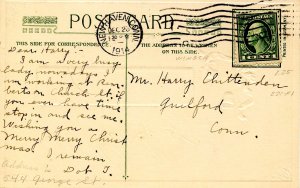 POST CARD
THIS SIDE FOR CORRESPONDENCE
THE ADDRESS TO BE WRITTEN
ON THIS SIDE.
NORTH HAVEN, CONN.
DEC 20
1914
1 CENT 1
Dear Harry:-
I am a very busy
lady nowadays I
at Rom
berto on Church St. if
you ever have time
stop in and see me.
Wishing you a
Merry Merry Christ
mas, I remain
Dot T.
544 George St.
Mr. Harry Chittenden
Guilford
Conn.
1.25